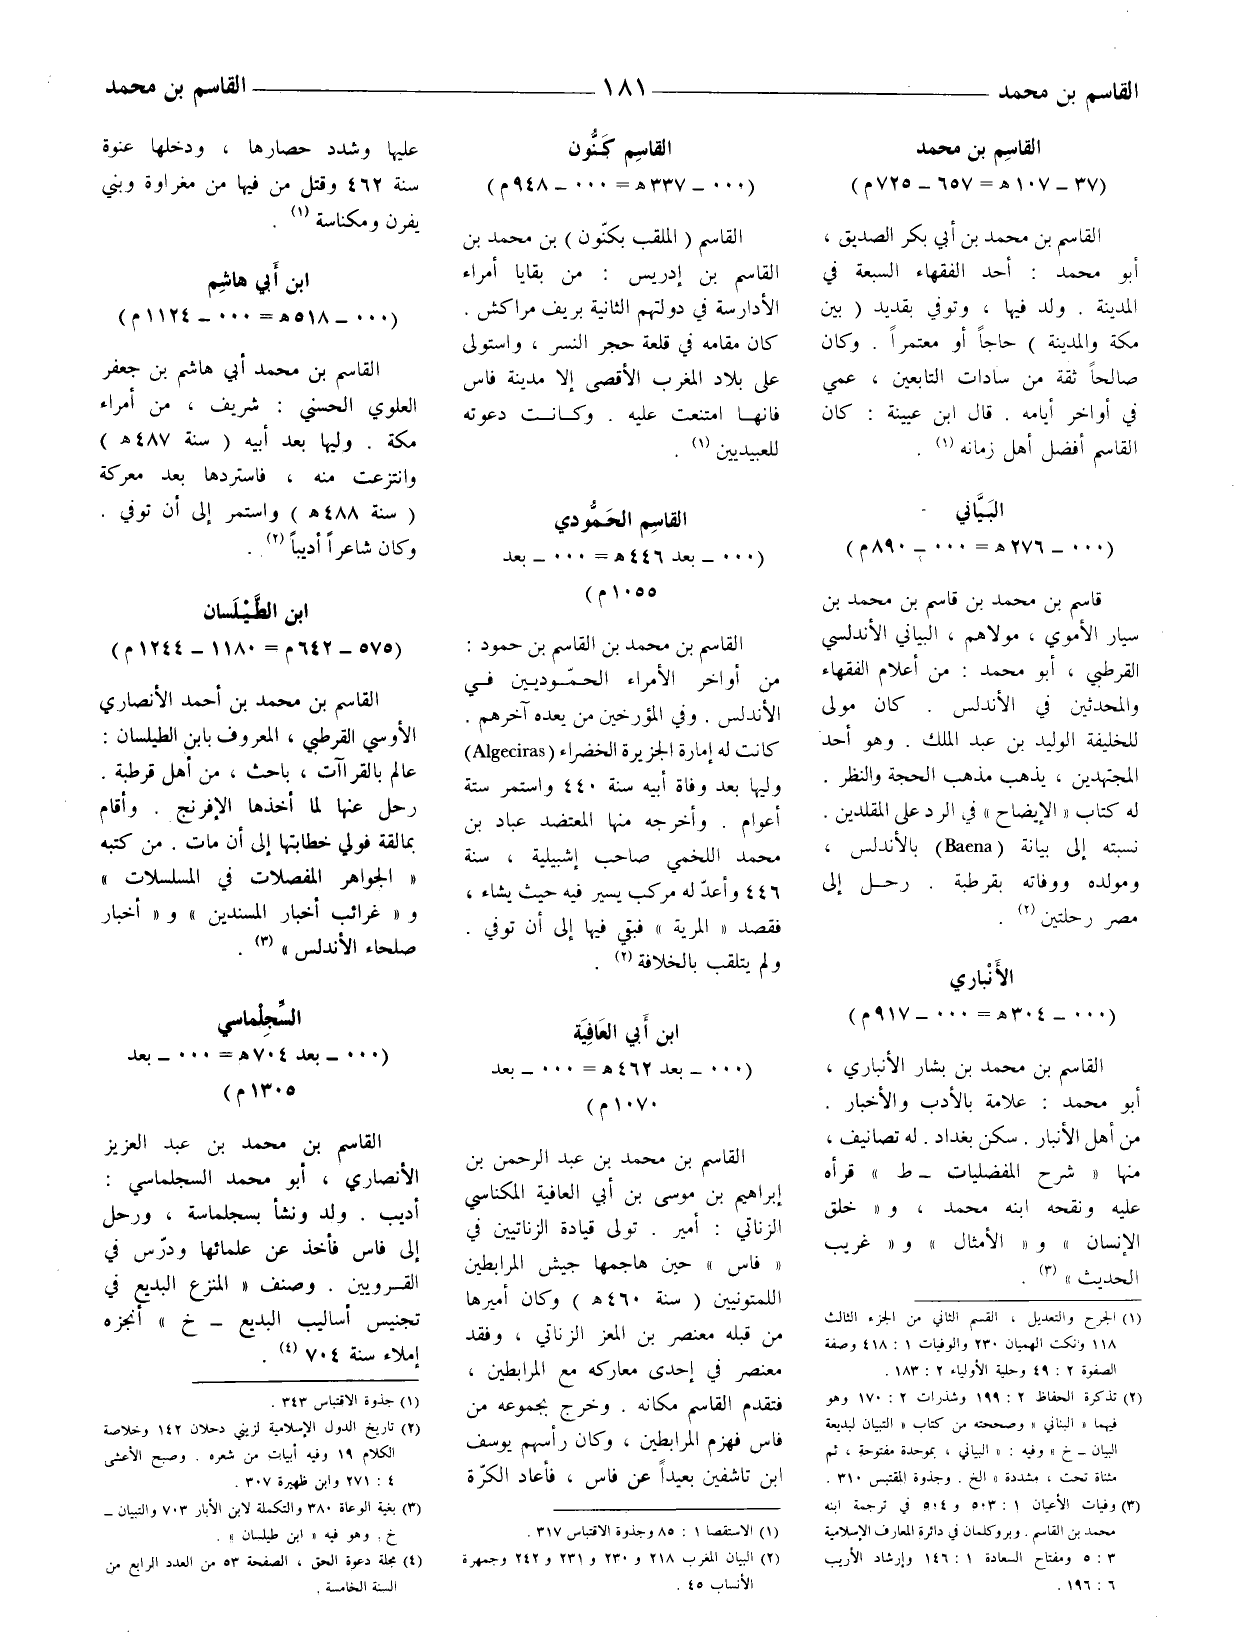 القاسم بن محمد
١٨١
القاسم بن محمد
القاسِم بن محمد
(٣٧ – ١٠٧ هـ = ٦٥٧ – ٧٢٥ م)
القاسم بن محمد بن أبي بكر الصديق ،
أبو محمد : أحد الفقهاء السبعة في
المدينة . ولد فيها ، وتوفي بقديد ( بين
مكة والمدينة ) حاجاً أو معتمراً . وكان
صالحاً ثقة من سادات التابعين ، عمي
في أواخر أيامه . قال ابن عيينة : كان
القاسم أفضل أهل زمانه (١) .
البَيَّاني
(٠٠٠ – ٢٧٦ هـ = ٠٠٠ – ٨٩٠ م)
قاسم بن محمد بن قاسم بن محمد بن
سيار الأموي ، مولاهم ، البياني الأندلسي
القرطبي ، أبو محمد : من أعلام الفقهاء
والمحدثين في الأندلس . كان مولى
للخليفة الوليد بن عبد الملك . وهو أحد
المجتهدين ، يذهب مذهب الحجة والنظر .
له كتاب « الإيضاح » في الرد على المقلدين .
نسبته إلى بيانة (Baena) بالأندلس ،
ومولده ووفاته بقرطبة . رحـل إلى
مصر رحلتين (٢) .
الأَنْباري
(٠٠٠ – ٣٠٤ هـ = ٠٠٠ – ٩١٧ م)
القاسم بن محمد بن بشار الأنباري ،
أبو محمد : علامة بالأدب والأخبار .
من أهل الأنبار . سكن بغداد . له تصانيف ،
منها « شرح المفضليات – ط » قرأه
عليه ونقحه ابنه محمد ، و « خلق
الإنسان » و « الأمثال » و « غريب
الحديث » (٣) .
(١) الجرح والتعديل ، القسم الثاني من الجزء الثالث
١١٨ ونكت الهميان ٢٣٠ والوفيات ١ : ٤١٨ وصفة
الصفوة ٢ : ٤٩ وحلية الأولياء ٢ : ١٨٣ .
(٢) تذكرة الحفاظ ٢ : ١٩٩ وشذرات ٢ : ١٧٠ وهو
فيهما « البناني » وصححته من كتاب « التبيان لبديعة
البيان – خ » وفيه : « البياني ، بموحدة مفتوحة ، ثم
مثناة تحت ، مشددة » الخ . وجذوة المقتبس ٣١٠ .
(٣) وفيات الأعيان ١ : ٥٠٣ و ٥٠٤ في ترجمة ابنه
محمد بن القاسم . وبروكلمان في دائرة المعارف الإسلامية
٣ : ٥ ومفتاح السعادة ١ : ١٤٦ وإرشاد الأريب
٦ : ١٩٦ .
القاسِم كَنُّون
(٠٠٠ – ٣٣٧ هـ = ٠٠٠ – ٩٤٨ م)
القاسم ( الملقب بكنّون ) بن محمد بن
القاسم بن إدريس : من بقايا أمراء
الأدارسة في دولتهم الثانية بريف مراكش .
كان مقامه في قلعة حجر النسر ، واستولى
على بلاد المغرب الأقصى إلا مدينة فاس
فانهـا امتنعت عليه . وكـانـت دعوته
للعبيديين (١) .
القاسِم الحَمُّودي
(٠٠٠ – بعد ٤٤٦ هـ = ٠٠٠ – بعد
١٠٥٥ م)
القاسم بن محمد بن القاسم بن حمود :
من أواخر الأمراء الحمّـوديـن فـي
الأندلس . وفي المؤرخين من يعده آخرهم .
كانت له إمارة الجزيرة الخضراء (Algeciras)
وليها بعد وفاة أبيه سنة ٤٤٠ واستمر ستة
أعوام . وأخرجه منها المعتضد عباد بن
محمد اللخمي صاحب إشبيلية ، سنة
٤٤٦ وأعدّ له مركب يسير فيه حيث يشاء ،
فقصد « المرية » فبقي فيها إلى أن توفي .
ولم يتلقب بالخلافة (٢) .
ابن أَبي العَافِيَة
(٠٠٠ – بعد ٤٦٢ هـ = ٠٠٠ – بعد
١٠٧٠ م)
القاسم بن محمد بن عبد الرحمن بن
إبراهيم بن موسى بن أبي العافية المكناسي
الزناتي : أمير . تولى قيادة الزناتيين في
« فاس » حين هاجمها جيش المرابطين
اللمتونيين ( سنة ٤٦٠ هـ ) وكان أميرها
من قبله معنصر بن المعز الزناتي ، وفقد
معنصر في إحدى معاركه مع المرابطين ،
فتقدم القاسم مكانه . وخرج بجموعه من
فاس فهزم المرابطين ، وكان رأسهم يوسف
ابن تاشفين بعيداً عن فاس ، فأعاد الكرّة
(١) الاستقصا ١ : ٨٥ وجذوة الاقتباس ٣١٧ .
(٢) البيان المغرب ٢١٨ و ٢٣٠ و ٢٣١ و ٢٤٢ وجمهرة
الأنساب ٤٥ .
عليها وشدد حصارها ، ودخلها عنوة
سنة ٤٦٢ وقتل من فيها من مغراوة وبني
يفرن ومكناسة (١) .
ابن أَبي هاشِم
(٠٠٠ – ٥١٨ هـ = ٠٠٠ – ١١٢٤ م)
القاسم بن محمد أبي هاشم بن جعفر
العلوي الحسني : شريف ، من أمراء
مكة . وليها بعد أبيه ( سنة ٤٨٧ هـ )
وانتزعت منه ، فاستردها بعد معركة
( سنة ٤٨٨ هـ ) واستمر إلى أن توفي .
وكان شاعراً أديباً (٢) .
ابن الطَّيْلَسان
(٥٧٥ – ٦٤٢ م = ١١٨٠ – ١٢٤٤ م)
القاسم بن محمد بن أحمد الأنصاري
الأوسي القرطبي ، المعروف بابن الطيلسان :
عالم بالقراآت ، باحث ، من أهل قرطبة .
رحل عنها لما أخذها الإفرنج . وأقام
بمالقة فولي خطابتها إلى أن مات . من كتبه
« الجواهر المفصلات في المسلسلات »
و « غرائب أخبار المسندين » و « أخبار
صلحاء الأندلس » (٣) .
السِّجِلْماسي
(٠٠٠ – بعد ٧٠٤ هـ = ٠٠٠ – بعد
١٣٠٥ م)
القاسم بن محمد بن عبد العزيز
الأنصاري ، أبو محمد السجلماسي :
أديب . ولد ونشأ بسجلماسة ، ورحل
إلى فاس فأخذ عن علمائها ودرّس في
القـرويين . وصنف « المنزع البديع في
تجنيس أساليب البديع – خ » أنجزه
إملاء سنة ٧٠٤ (٤) .
(١) جذوة الاقتباس ٣٤٣ .
(٢) تاريخ الدول الإسلامية لزيني دحلان ١٤٢ وخلاصة
الكلام ١٩ وفيه أبيات من شعره . وصبح الأعشى
٤ : ٢٧١ وابن ظهيرة ٣٠٧ .
(٣) بغية الوعاة ٣٨٠ والتكملة لابن الأبار ٧٠٣ والتبيان –
خ . وهو فيه « ابن طيلسان » .
(٤) مجلة دعوة الحق ، الصفحة ٥٣ من العدد الرابع من
السنة الخامسة .